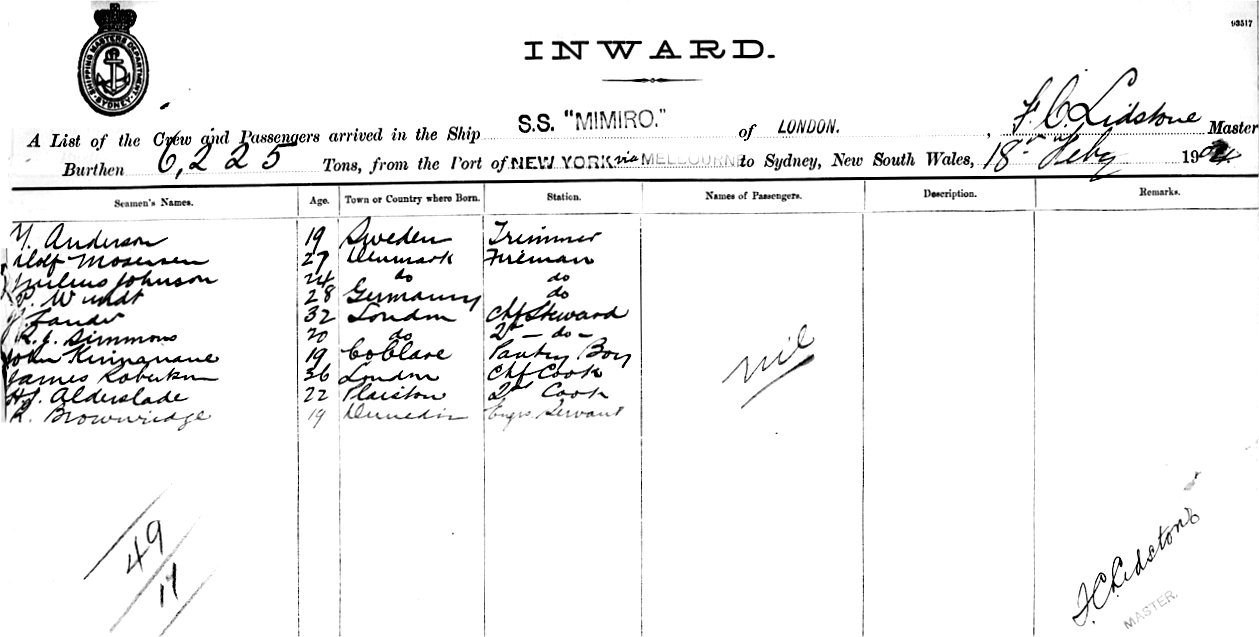 93517
SHIPPING MASTERS DEPARTMENT SYDNEY
INWARD.
A List of the Crew and Passengers arrived in the Ship S.S. "MIMIRO." of LONDON. , F C Lidstone Master
Burthen 6,225 Tons, from the Port of NEW YORK via MELBOURNE to Sydney, New South Wales, 18th Feby 190
Seamen's Names. Age. Town or Country where Born. Station. Names of Passengers. Description. Remarks.
Y. Anderson 19 Sweden Trimmer
Mosersen 27 Denmark Fireman
Julius Johnson 24 do do
P. Wundt 28 Germany do
J. Lander 32 London Chf Steward
R.J. Simmons 20 do 2nd - do -
John 19 Co Clare Pantry Boy
James Robertson 36 London Chf Cook
H.J. Alderslade 22 Plaistow 2nd Cook
R. Brownridge 19 Dunedin Engrs Servant
nil
49
17
F.C. Lidstone
MASTER.